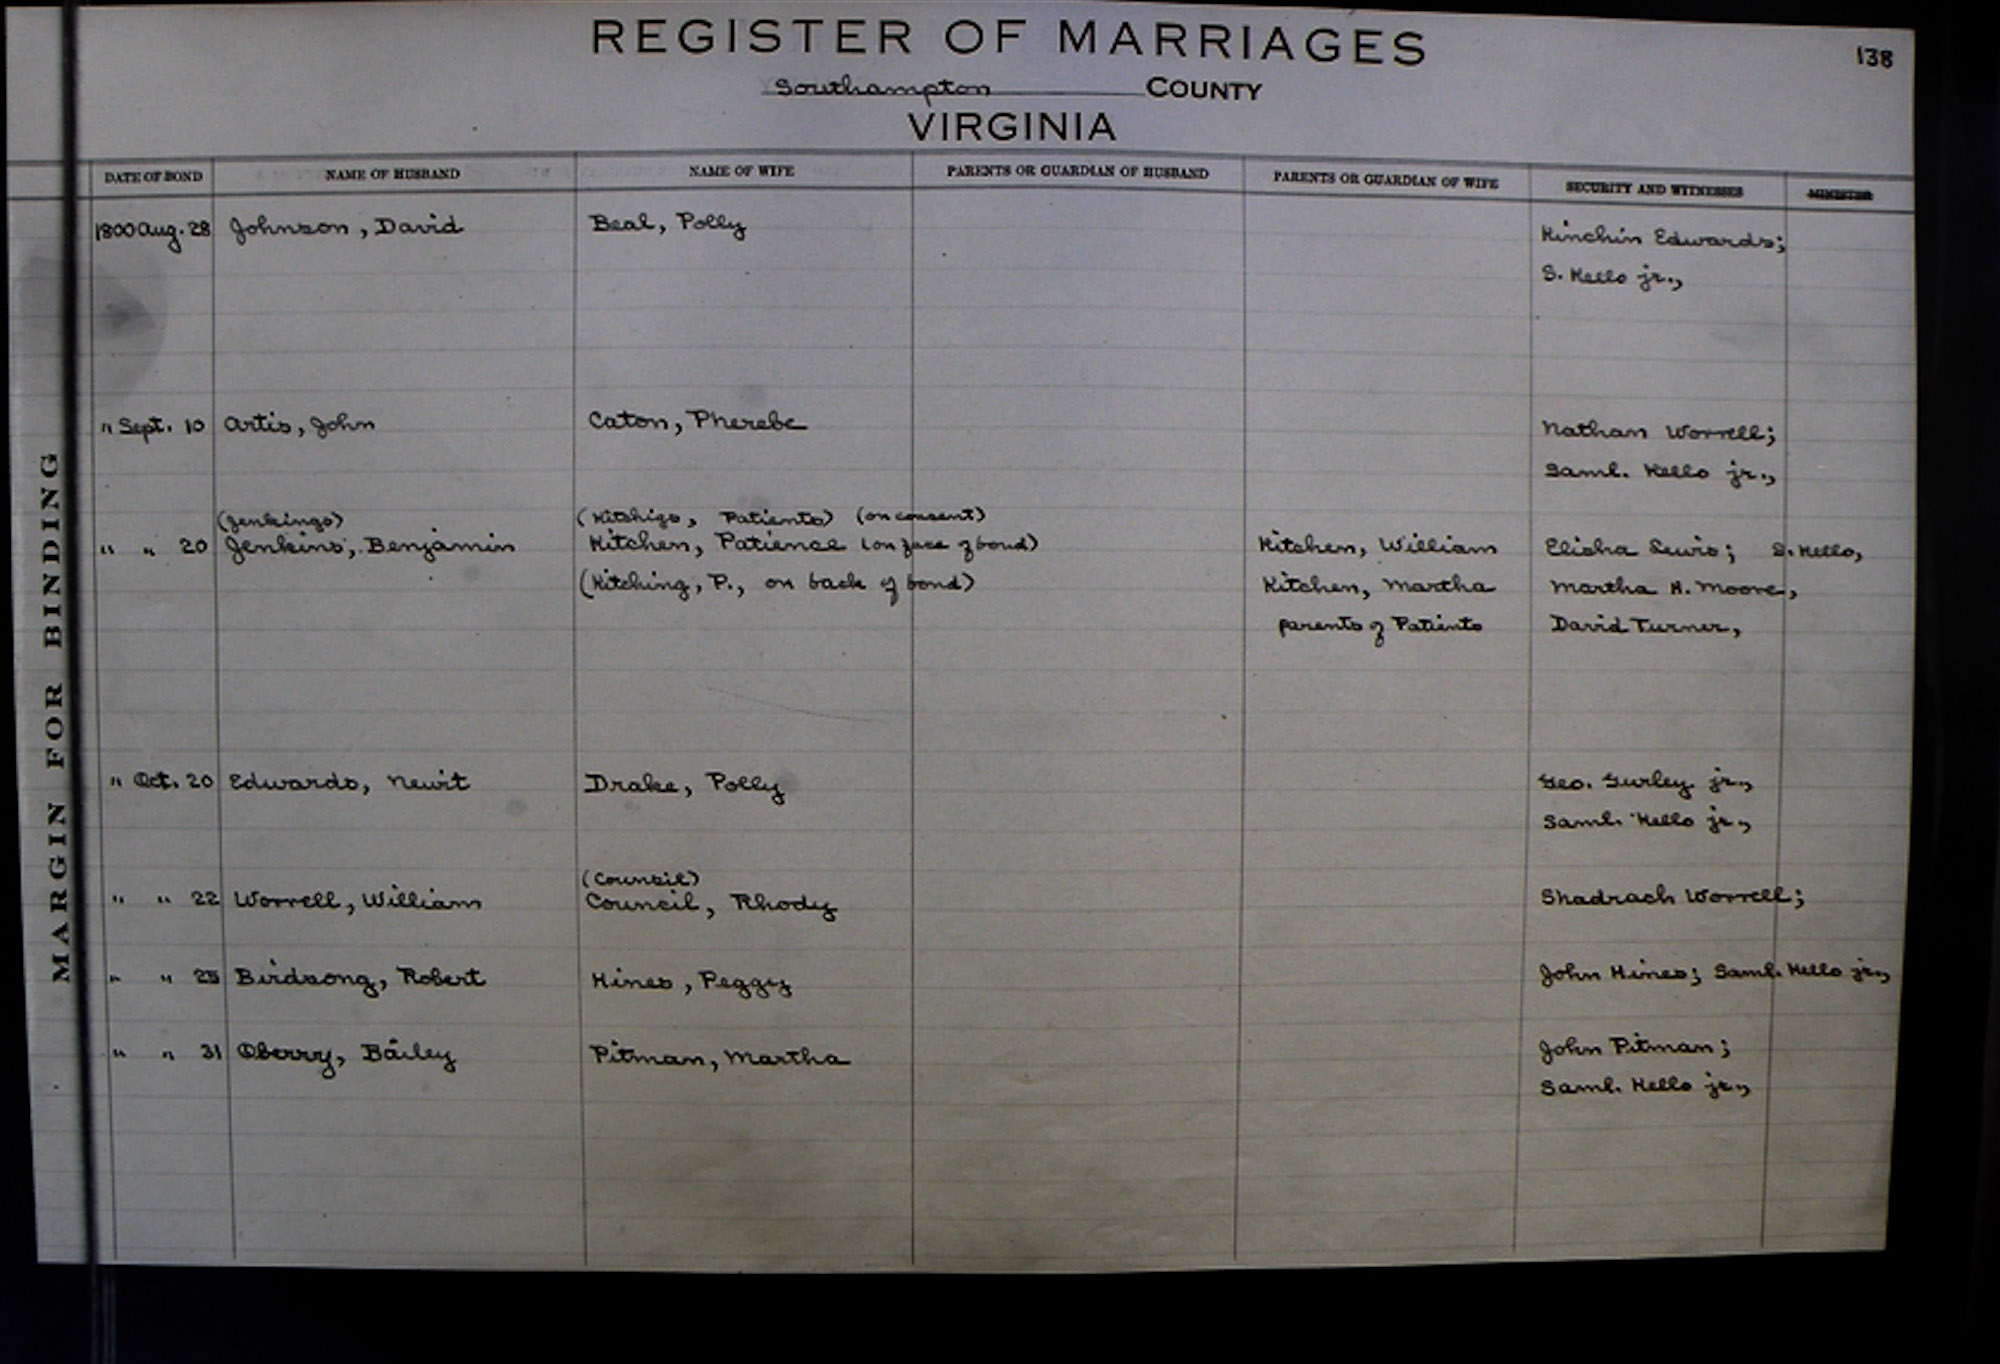 REGISTER OF MARRIAGES
138
Southampton COUNTY
VIRGINIA
MARGIN FOR BINDING
DATE OF BOND NAME OF HUSBAND NAME OF WIFE PARENTS OR GUARDIAN OF HUSBAND PARENTS OR GUARDIAN OF WIFE SECURITY AND WITNESSES MINISTER
1800 Aug. 28 Johnson, David Beal, Polly Kinchin Edwards;
S. Kello jr.,
" Sept. 10 Artis, John Caton, Pherebe Nathan Worrell;
Saml. Kello jr.,
(Jenkings) (Kitchigs, Patients) (on consent)
" " 20 Jenkins, Benjamin Kitchen, Patience (on face of bond) Kitchen, William Elisha Lewis; S. Kello,
(Kitching, P., on back of bond) Kitchen, Martha Martha H. Moore,
parents of Patients David Turner,
" Oct. 20 Edwards, Newit Drake, Polly Geo. Gurley jr.,
Saml. Kello jr.,
(Counsil)
" " 22 Worrell, William Council, Rhody Shadrach Worrell;
" " 25 Birdsong, Robert Hines, Peggy John Hines; Saml. Kello jr.,
" " 31 Oberry, Bailey Pitman, Martha John Pitman;
Saml. Kello jr.,